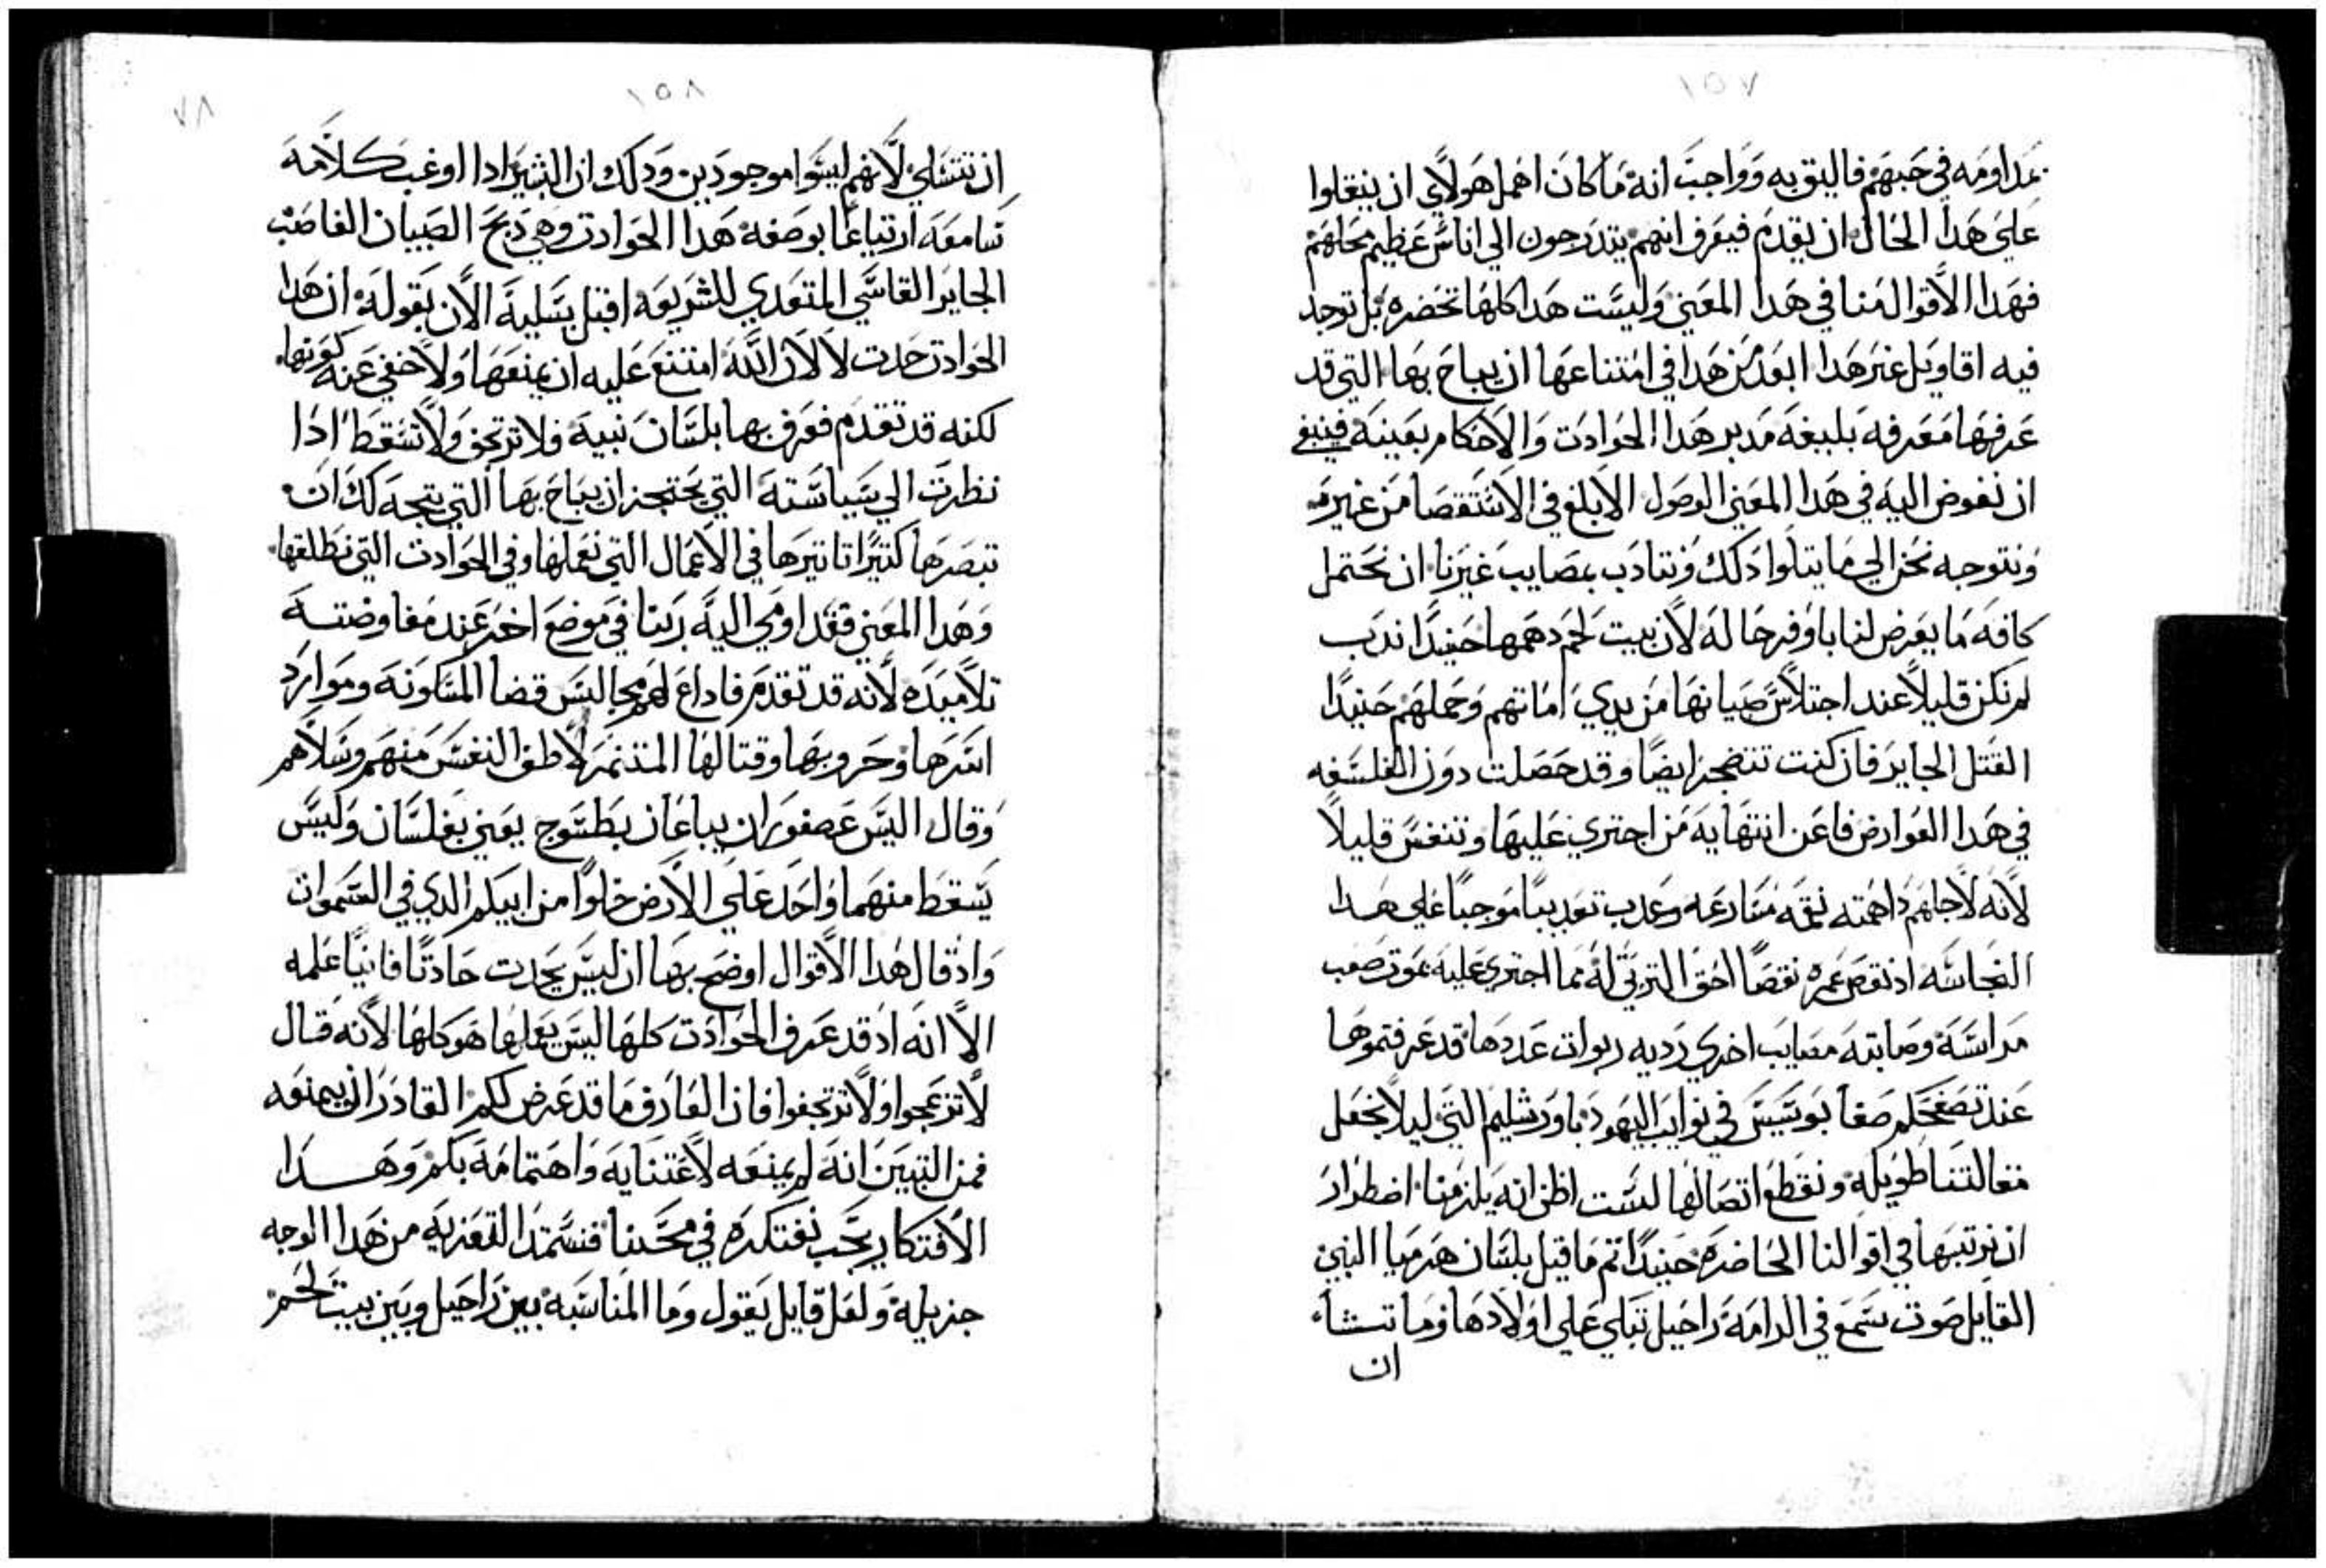 ١٥٧
بمداومه في حبهم فاليق به وواجب انه ما كان اهمل هولاي ان ينقلوا
علي هدا الحال ان يقدم فيعرف انهم يتدرجون الي اناس عظيم محلهم
فهدا الاقوال منا في هدا المعني وليست هدا كلها تحضره بل توجد
فيه اقاويل غير هدا ابعد من هدا في امتناعها ان يباح بها التي قد
عرفها معرفه بليغه مدبر هدا الحوادت والاحكام بعينه فينبغي
ان نفوض اليه في هدا المعني الوصول الابلغ في الاستقصا من غيره
ونتوجه نحن الي ما يتلوا دلك ونتادب بمصايب غيرنا ان نحتمل
كافه ما يعرض لنا باوفر حاله لان بيت لحم دهمها حنيدا ندب
لم تكن قليلا عند اجتلاس صبيانها من يدي اماتهم وحملهم حنيدا
القتل الجاير فان كنت تتضجر ايضا وقد حصلت دون الفلسفه
في هدا العوارض فاعن انتهايه من اجتري عليها وتنفس قليلا
لانه لاجلهم داهمته نقمه مسارعه وعدب تعديبا موجبا علي هدا
النجاسه اذ نقص عمره نقصا احق التربي له بما اجتري عليه بموت صعب
مراسه وصابته مصايب اخري رديه ربوات عددها قد عرفتموها
عند تصفحكم صفا بوسيس في نوايب اليهود باورشليم التي ليلا نجعل
مقالتنا طويله ونقطع اتصالها لست اظن انه يلزمنا اضطرار
ان نرتبها في اقوالنا الحاضره حنيدا تم ما قيل بلسان هرميا النبي
القايل صوت سمع في الرامه راحيل تبكي علي اولادها وما تشا
ان
١٥٨
٧٨
ان تتسلي لانهم ليسوا موجودين ودلك ان البشير ادا اوعب كلامه
سامعه ارتياعا بوصفه هدا الحوادت وهي دبح الصبيان الغاصب
الجاير القاسي المتعدي للشريعه اقبل بتسليه الان بقوله ان هدا
الحوادت حدت لا لان الله امتنع عليه ان يمنعها ولا خفي عنه كونها
لكنه قد تقدم فعرف بها بلسان نبيه فلا ترتجف ولا تسقط ادا
نظرت الي سياسته التي يحتجز ان يباح بها التي يتجه لك ان
تبصرها كتيرا تاتيرها في الاعمال التي نعملها وفي الحوادت التي نطلقها
وهدا المعني فقد اومي اليه ربنا في موضع اخر عند مفاوضته
تلاميده لانه قد تقدم فاداع لهم مجالس قضا المسكونه وموارد
اسرها وحروبها وقتالها المتذمر لاطف النفس منهم وسلاهم
وقال اليس عصفوران يباعان بطسوج يعني بفلسان وليس
يسقط منهما واحد علي الارض خلوا من ابيكم الدي في السموات
واذ قال هدا الاقوال اوضح بها ان ليس يحدت حادتا فانيا علمه
الا انه اذ قد عرف الحوادت كلها ليس يعملها هو كلها لانه قال
لا تنزعجوا ولا ترتجفوا فان العارف ما قد عرض لكم القادر ان يمنعه
فمن التبين انه لم يمنعه لاعتنايه واهتمامه بكم وهدا
الافتكار يجب نفتكره في محننا فنستمد التعزيه من هدا الوجه
جزيله ولعل قايل يقول وما المناسبه بين راحيل وبين بيت لحم